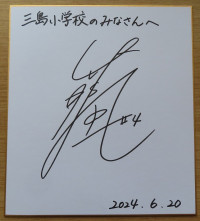 三島小学校のみなさんへ
#4
2024.6.20